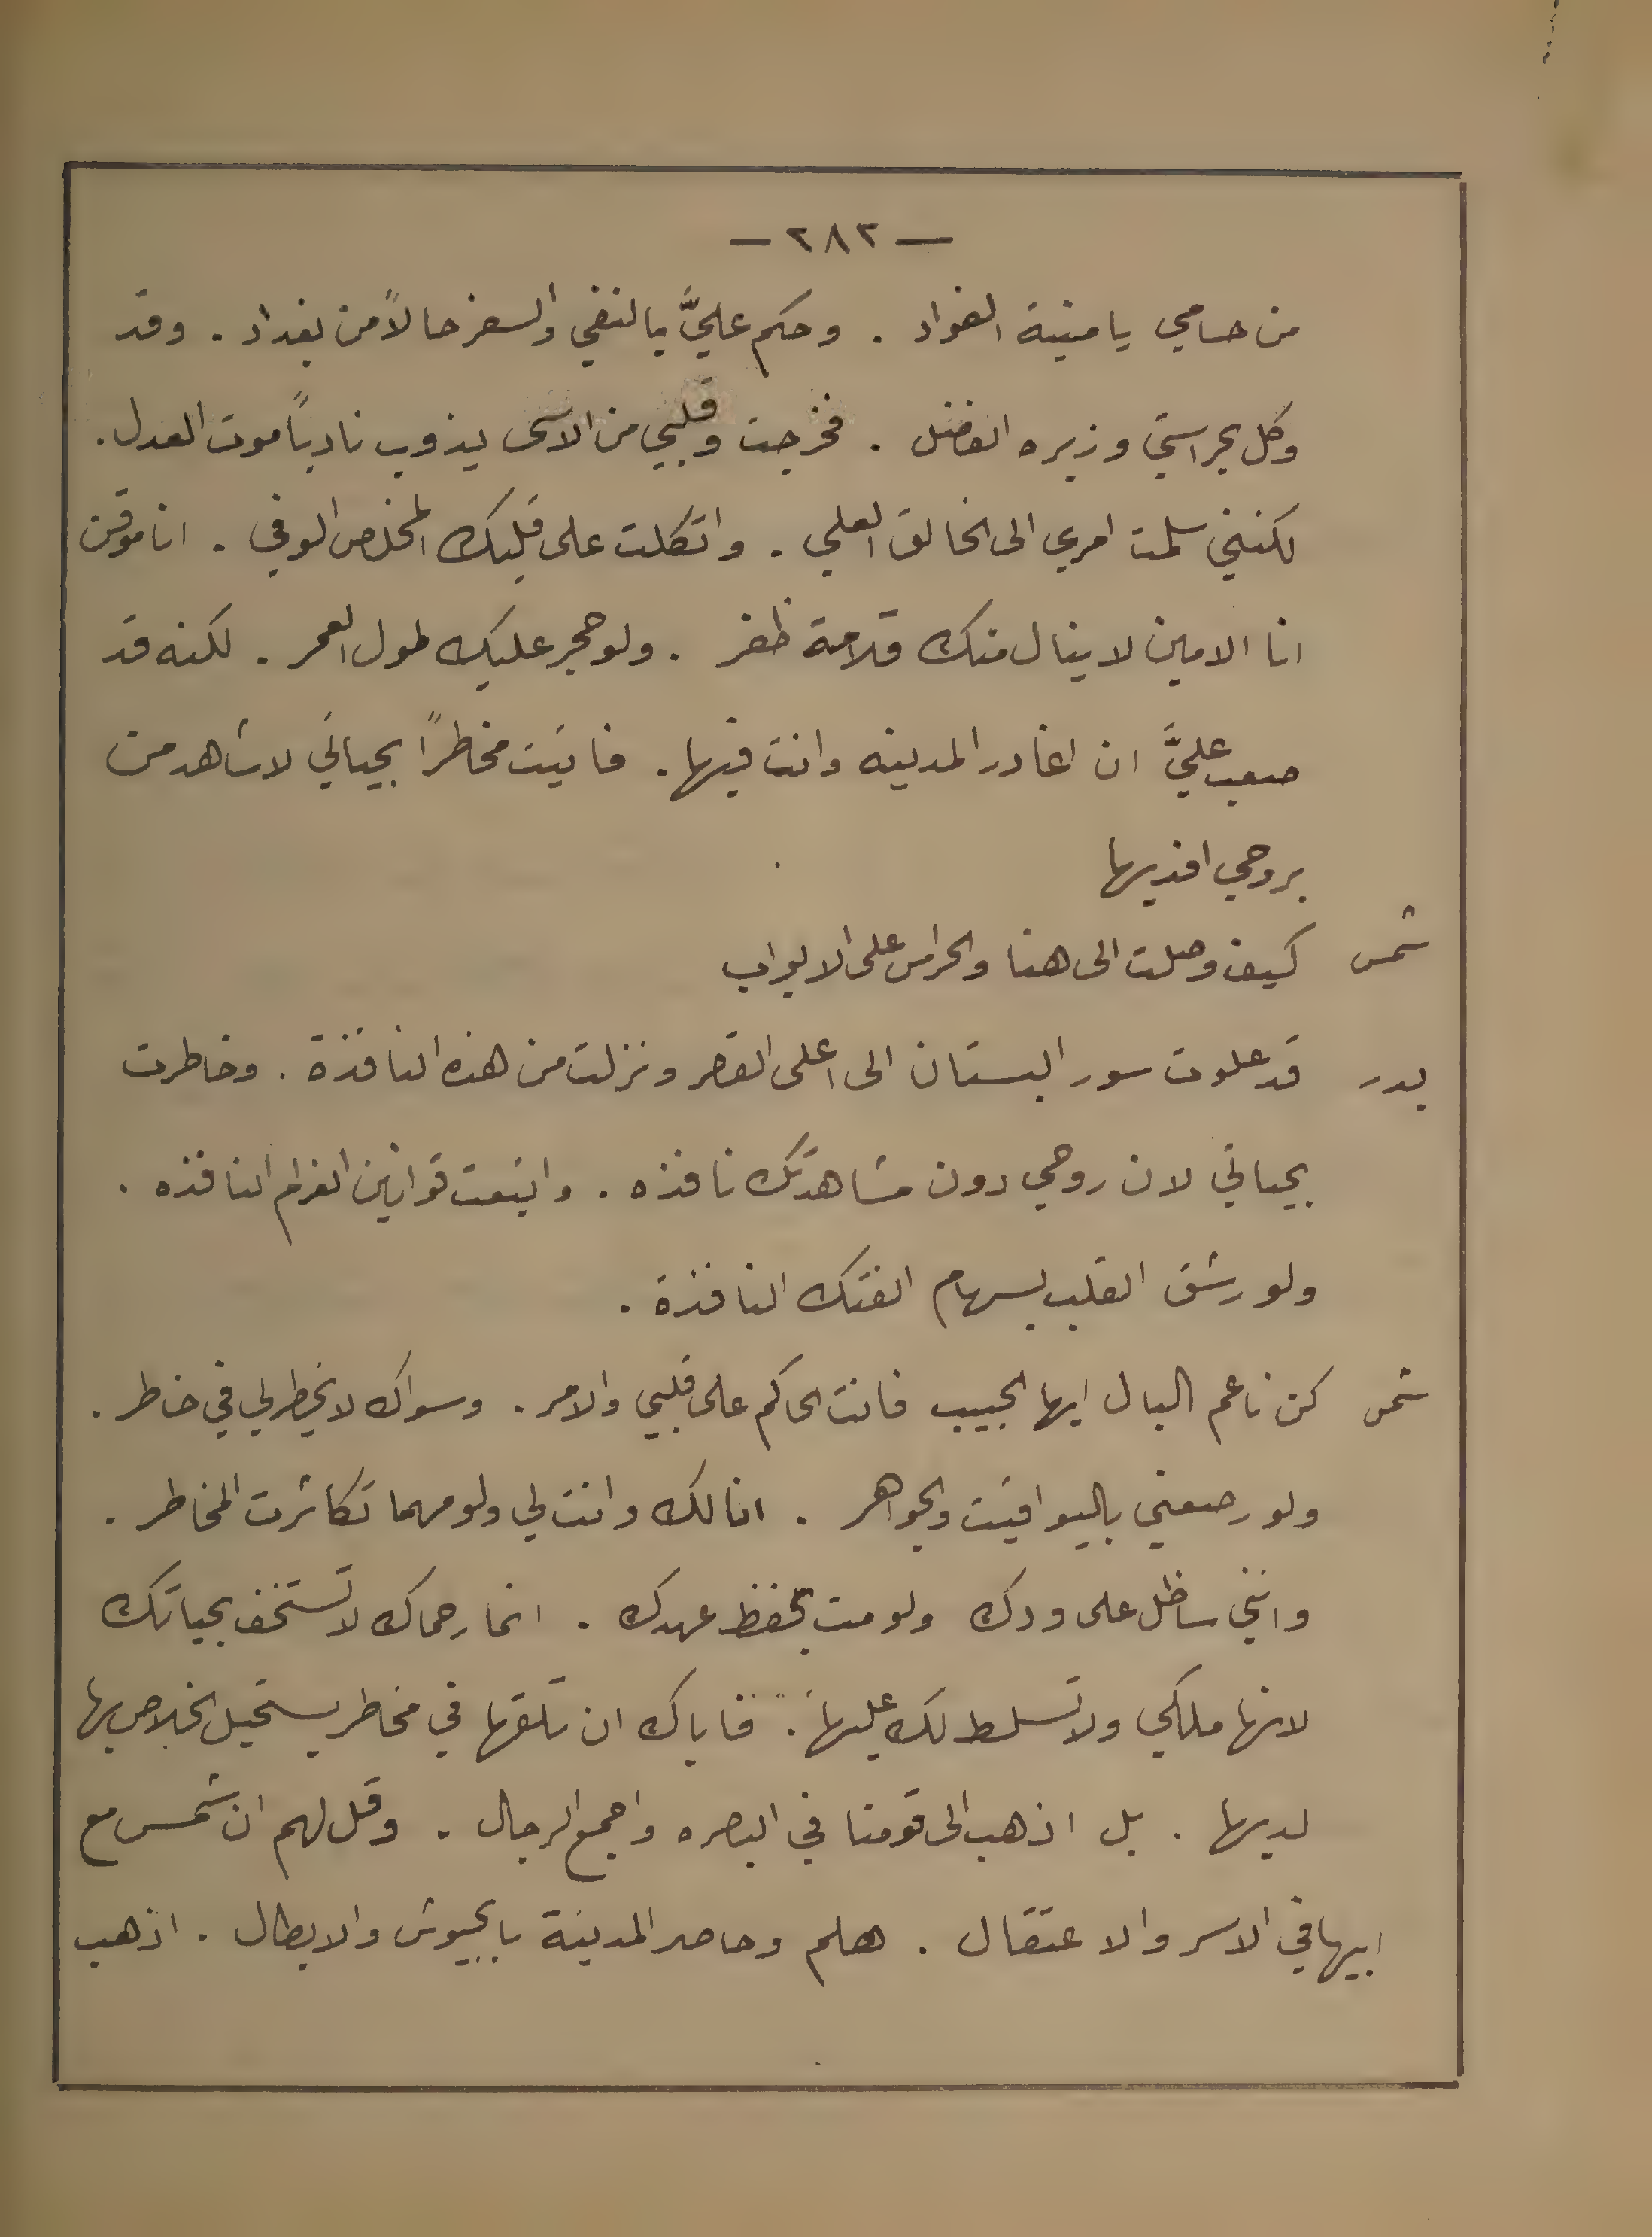 — ٢٨٢ —
من حسامي يا منية الفواد . وحكم عليَّ بالنفي والسفر حالاً من بغداد . وقد
وكل بحراستي وزيره الفضل . فخرجت وقلبي من الاسى يذوب نادباً موت العدل .
لكنني سلمت امري الى الخالق العلي . واتكلت على قلبك المخلص الوفي . انا موقن
انا الامين لا ينال منك قلامة ظفر . ولو حجر عليك طول العمر . لكنه قد
صعب عليَّ ان اغادر المدينه وانت فيها . فاتيت مخاطراً بحياتي لاشاهد من
بروحي افديها
شمس كيف وصلت الى هنا والحراس على الابواب
بدر قد علوت سور البستان الى اعلى القصر ونزلت من هذه النافذة . وخاطرت
بحياتي لان روحي دون مشاهدتك نافذه . واتبعت قوانين الغرام النافذه .
ولو رشق القلب بسهام الفتك النافذة .
شمس كن ناعم البال ايها الحبيب فانت الحاكم على قلبي والامر . وسواك لا يخطر لي في خاطر .
ولو رصعني باليواقيت والجواهر . انا لك وانت لي ولو مهما تكاثرت المخاطر .
وانني ساظل على ودك ولو مت بحفظ عهدك . انما رحماك لا تستخف بحياتك
لانها ملكي ولا تسلط لك عليها . فاياك ان تلقها في مخاطر يستحيل الخلاص بها
لديها . بل اذهب الى قومنا في البصره واجمع الرجال . وقل لهم ان شمس مع
ابيها في الاسر والاعتقال . هلم وحاصر المدينة بالجيوش والابطال . اذهب